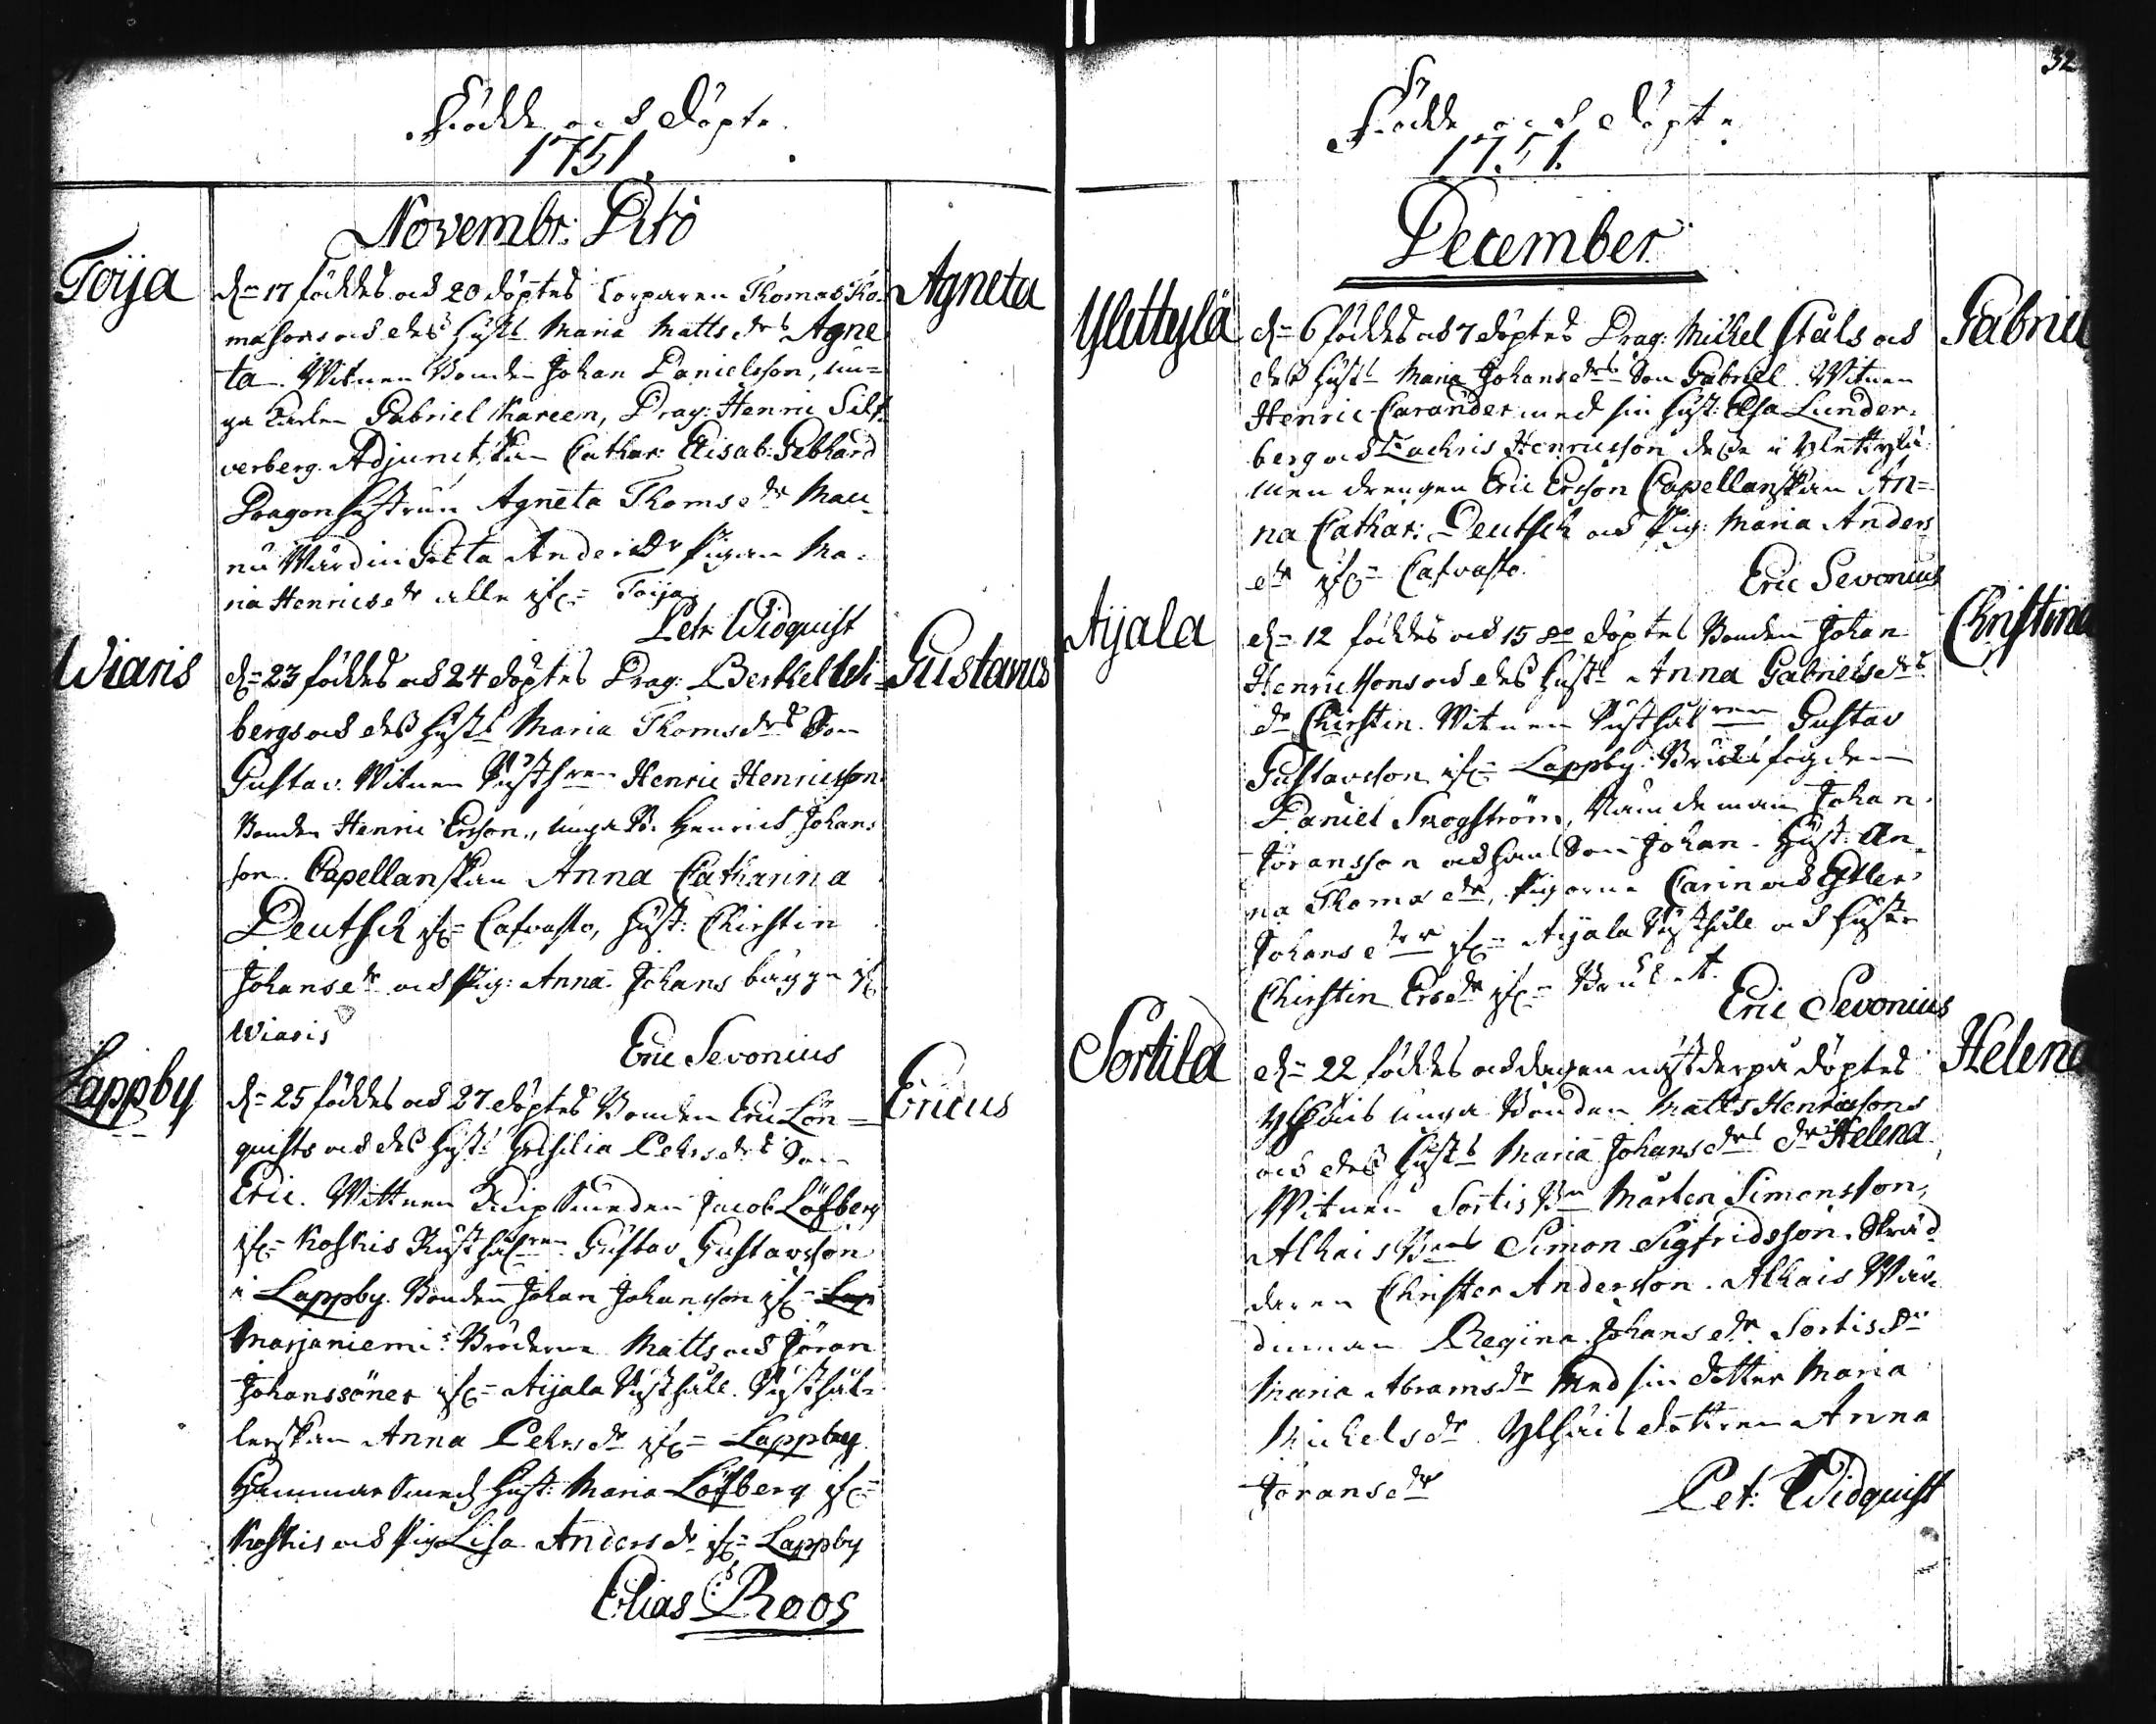 Födde och Döpte
1751.
Novembr: Dito
Toija
dn 17 föddes och 20 döptes Torparen Thomas Tho-
masons och dess Hust: Maria Matts drs Agne
ta. Witnen Bonden Johan Danielsson, un-
ga Karlen Gabriel Kareen, Drag: Henric Silf-
verberg. Adjunctskan Cathar: Elisab: Gebhard
Dragon Hustrun Agneta Thoms dr Mau-
nu Wärdin Greta Anders Dr Pigan Ma-
ria Henrics dr alla ifrn Toija
Petr Widquist
Agneta
Wiaris
dn 23 föddes och 24 döptes Drag: Berthel Wi-
bergs och dess Hust: Maria Thoms drs Son
Gustav. Witnen Rusth:ren Henric Henricsson
Bonden Henric Ersson, unga Bn Henrics Johans
son. Capellanskan Anna Catharina
Deutsch ifrn Cafvasto, Hust: Chirstin
Johans dr och Pig: Anna Johans bägge ifr
Wiaris
Eric Sevonius
Gustavus
Lappby
dn 25 föddes och 27 döptes Bonden Eric Lön-
quists och dess Hust: Pehrs drs Son
Eric. Wittnen Knip Smeden Jacob Löfberg
ifrn Koskis Rusthålren Gustav Gustavsson
i Lappby. Bonden Johan Johansson ifrn Lap
Marjaniemi: Bröderne Matts och Jöran
Johanssöner ifrn Aijala Rusthåll. Rusthål-
lerskan Anna Pehrs dr ifrn Lappby
Hammar Smeds Hust: Maria Löfberg ifrn
Koskis och Pig: Lisa Anders dr ifrn Lappby
Elias Roos
Ericus
32
Födde och Döpte
1751.
December
Ylittylä
dn 6 föddes och 7 döptes Drag: Michel Ståls och
dess Hust: Maria Johans drs Son Gabriel. Witnen
Henric Carander med sin Hust: Elsa Lunder-
berg och Zachris Henricsson desse i Ylettylä
men drengen Eric Ersson Capellanskan An-
na Cathar: Deutsch och Pig: Maria Anders
dr ifrn Cafvasto.
Eric Sevonius
Gabriel
Aijala
dn 12 föddes och 15 döptes Bonden Johan
Henricssons och dess Hust: Anna Gabriels drs
dr Chirstin. Witnen Rusthålren Gustav
Gustavsson ifrn Lappby. Bruksfogden
Daniel Skogström, Nämndeman Johan
Jöransson och hans Son Johan. Hust: An-
na Thomas dr, Pigorna Carin och Ester
Johans drr ifrn Aijala Rusthåll och Hustr
Chirstin Ers dr ifrn Bruket.
Eric Sevonius
Christina
Sortila
dn 22 föddes och dagen näst derpå döptes
unga Bonden Matts Henricssons
och dess Hust: Maria Johans drs dr Helena
Witnen Sortis Bn Mårten Simonsson,
Alhais Bns Simon Sigfridsson. Skräd
daren Christer Andersson. Alhais Wär-
dinnan Regina Johans dr. Sortis Dr
Maria Abrams dr Med sin dotter Maria
Michels dr dottren Anna
Jörans dr
Pet: Widquist
Helena